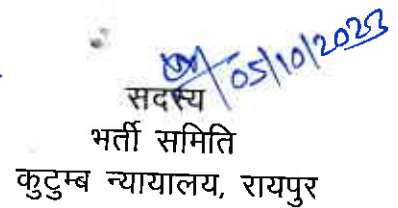 05/10/2023
सदस्य
भर्ती समिति
कुटुम्ब न्यायालय, रायपुर